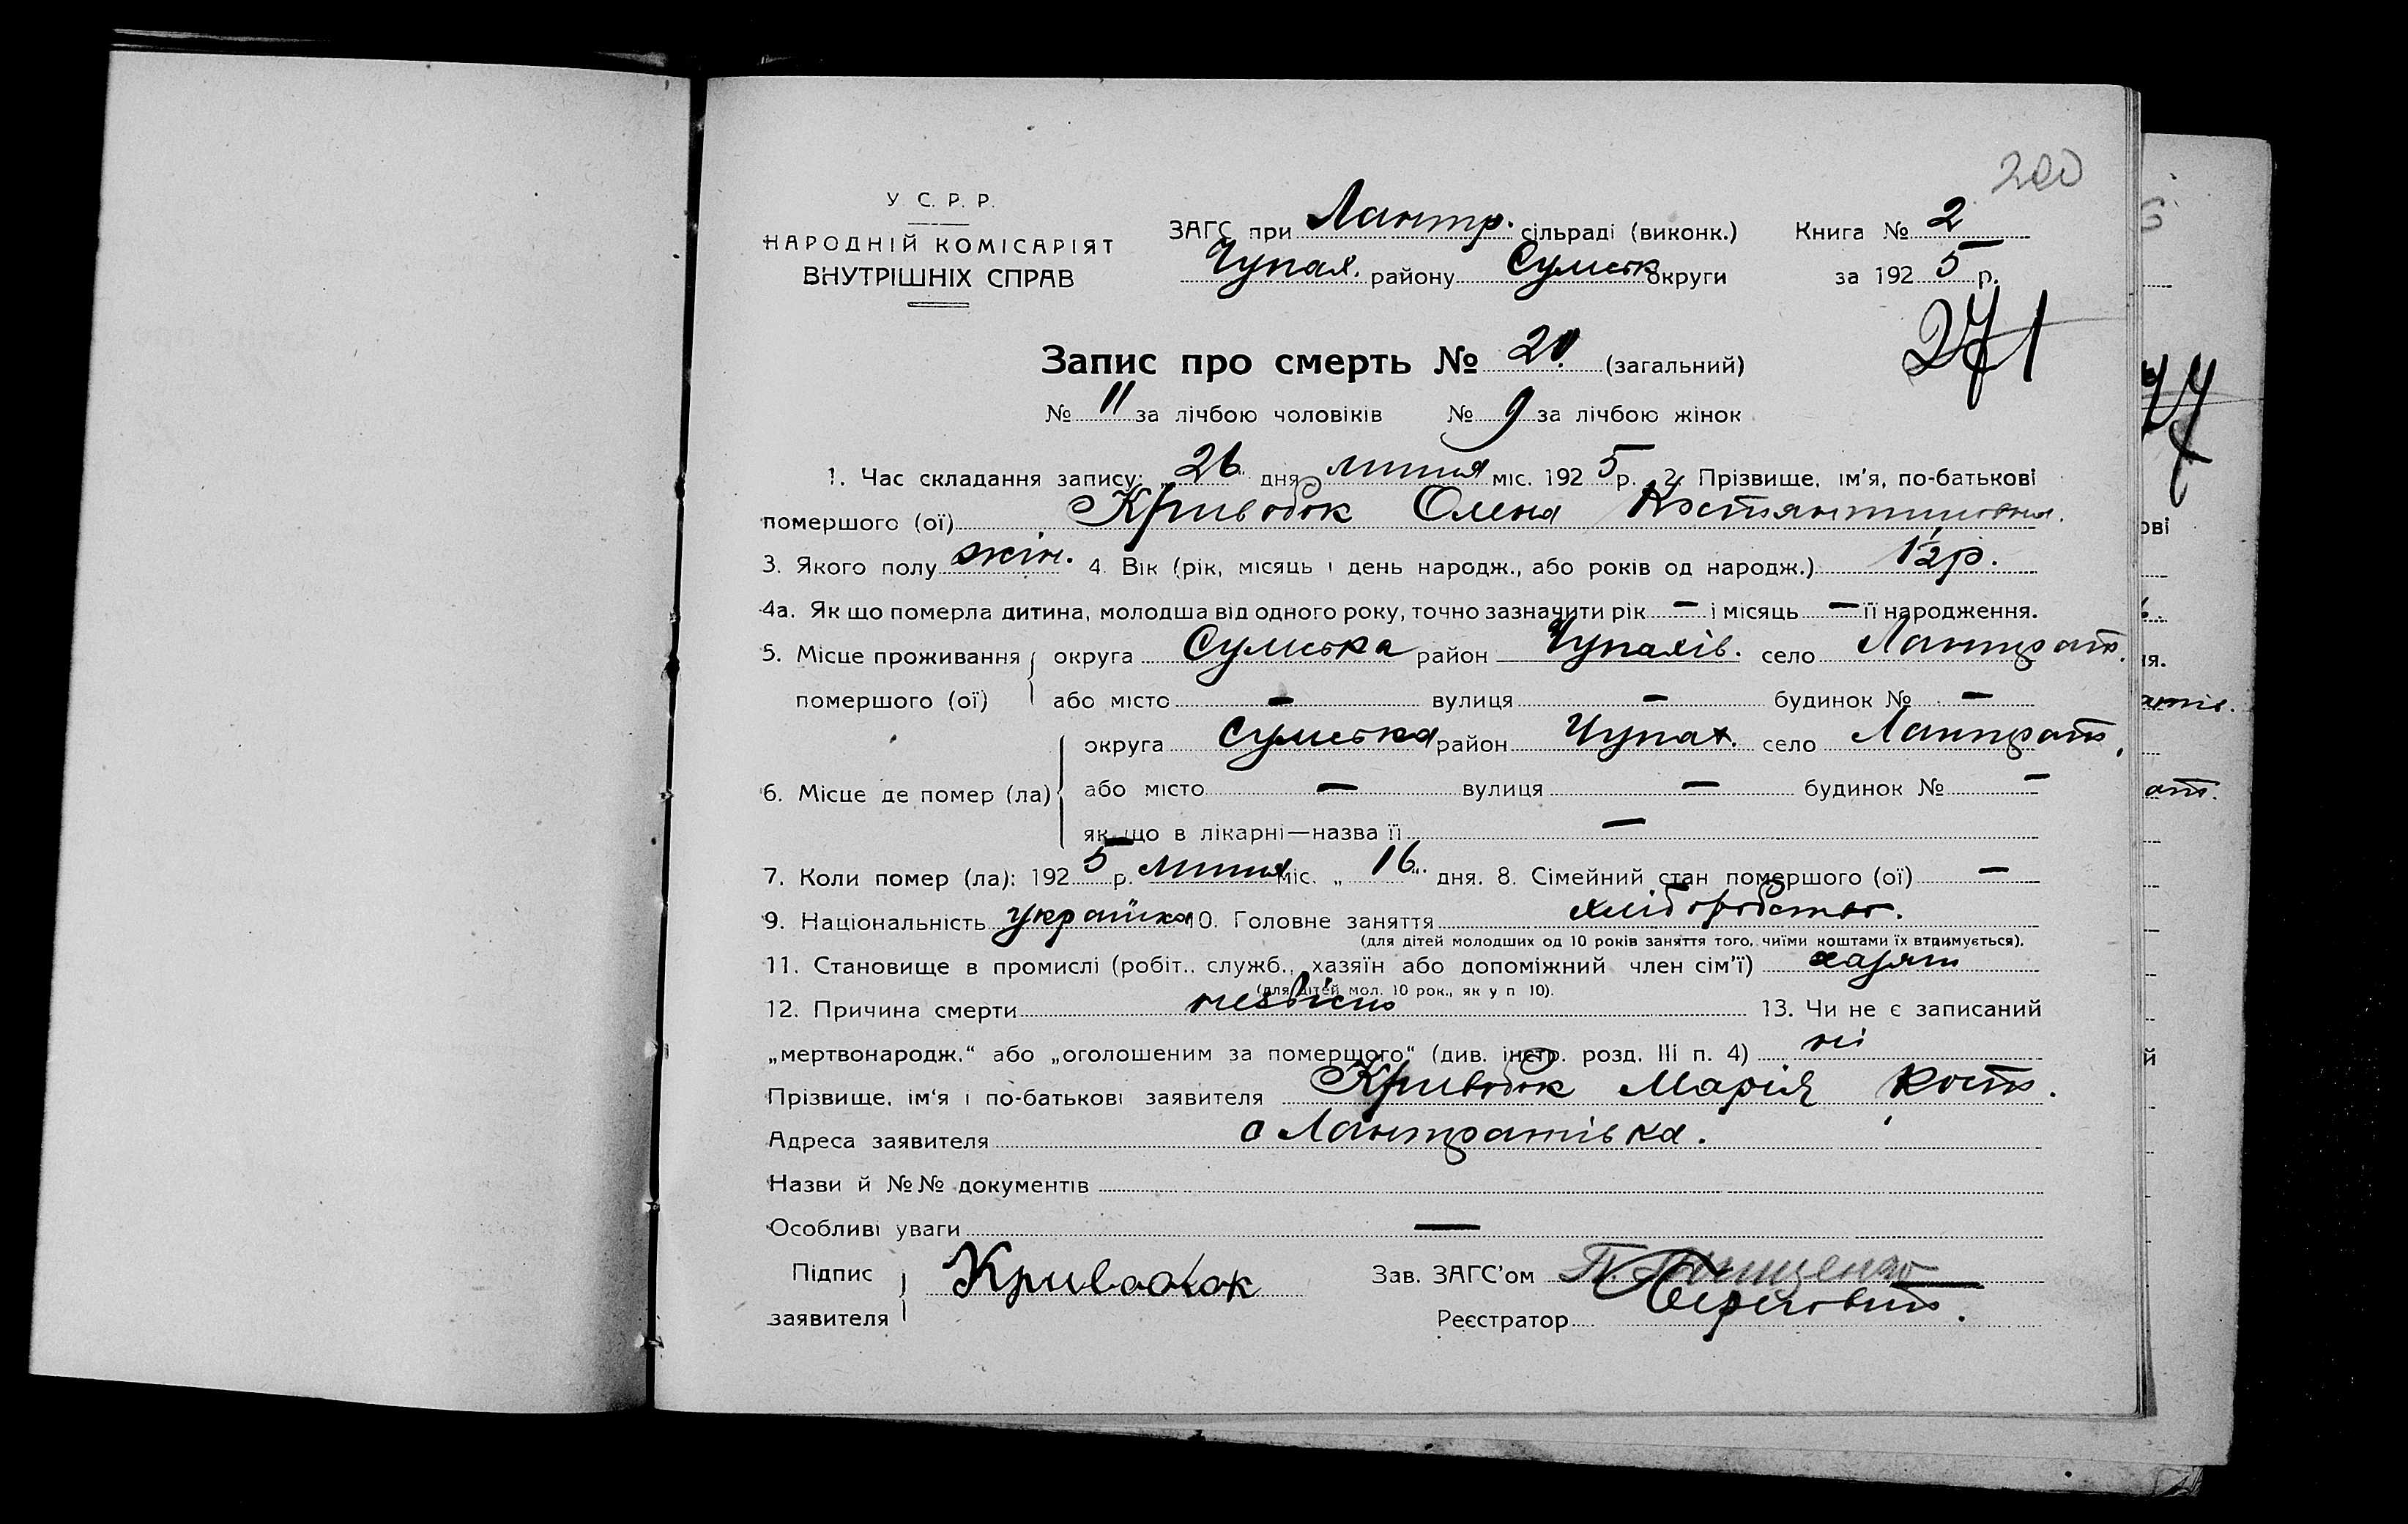 200
У С. Р. Р.
НАРОДНІЙ КОМІСАРІЯТ
ВНУТРІШНІХ СПРАВ
ЗАГС при Лантр. сільраді (виконк.) Книга № 2
Чупах. району Сумськ округи за 192 5 р.
271
Запис про смерть № 20 (загальний)
№ 11 за лічбою чоловіків № 9 за лічбою жінок
1. Час складання запису: „ 26 " дня липня міс. 192 5 р. 2. Прізвище, ім'я, по-батькові
помершого (ої) Криворок Олена Костянтиновна.
3. Якого полу жін. 4. Вік (рік, місяць і день народж., або років од народж.) 1/2 р.
4а. Як що померла дитина, молодша від одного року, точно зазначити рік — і місяць — її народження.
5. Місце проживання округа Сумська район Чупахів. село Лантрат.
помершого (ої) або місто — вулиця — будинок № —
округа Сумська район Чупах. село Лантрат.
6. Місце де помер (ла) або місто — вулиця — будинок № —
як що в лікарні—назва її —
7. Коли помер (ла): 192 5 р. липня міс. „ 16 " дня. 8. Сімейний стан помершого (ої) —
9. Національність українка 10. Головне заняття хліборобство.
(для дітей молодших од 10 років заняття того, чиїми коштами їх втримується).
11. Становище в промислі (робіт., служб., хазяїн або допоміжний член сім'ї) хазяїн
(для дітей мол. 10 рок., як у п 10).
12. Причина смерти незвісно 13. Чи не є записаний
„мертвонародж." або „оголошеним за померщого" (див. інстр. розд. III п. 4) ні
Прізвище, ім'я і по-батькові заявителя Криворок Марія Кост.
Адреса заявителя с Лантратівка.
Назви й №№ документів
Особливі уваги —
Підпис
заявителя Криворок Зав. ЗАГС'ом
Реєстратор